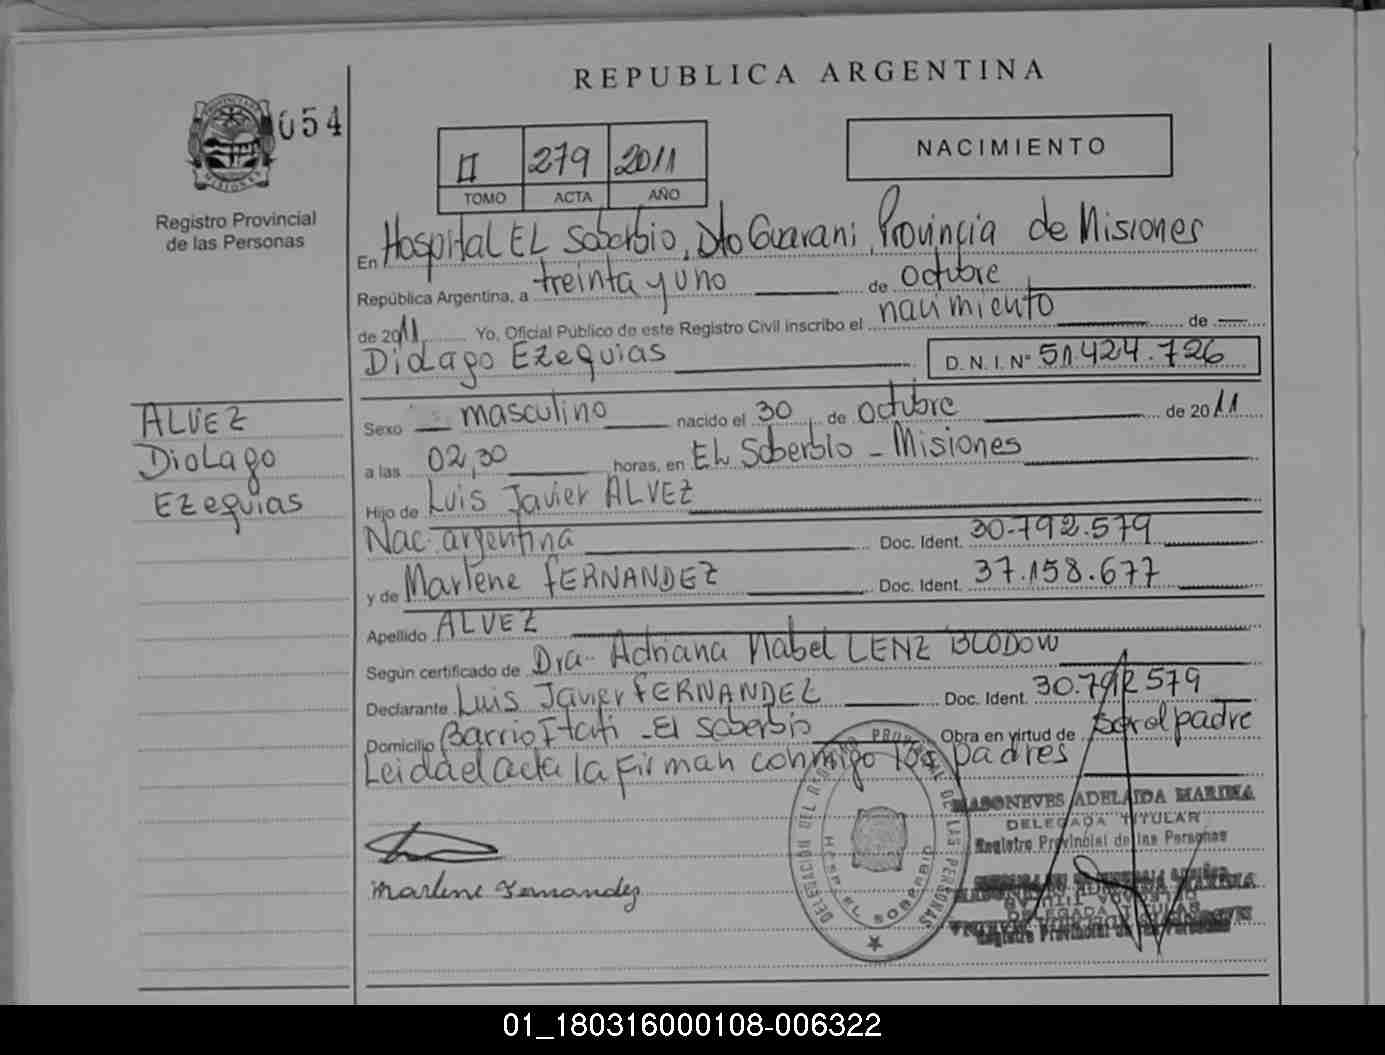 REPUBLICA ARGENTINA
054
Registro Provincial
de las Personas
II 279 2011
TOMO ACTA AÑO
NACIMIENTO
En Hospital EL Soberbio, Dto Guarani, Provincia de Misiones
República Argentina, a treinta y uno de octubre
de 2011 Yo, Oficial Público de este Registro Civil inscribo el nacimiento de
Diolago Ezequias D. N. I. N° 51.424.726
ALVEZ
Diolago
Ezequias
Sexo masculino nacido el 30 de octubre de 2011
a las 02,30 horas, en EL Soberbio - Misiones
Hijo de Luis Javier ALVEZ
Nac. argentina Doc. Ident. 30.792.579
y de Marlene FERNANDEZ Doc. Ident. 37.158.677
Apellido ALVEZ
Según certificado de Dra. Adriana Mabel LENZ BLODOW
Declarante Luis Javier FERNANDEZ Doc. Ident. 30.792 579
Domicilio Barrio Itati - El Soberbio Obra en virtud de ser el padre
Leida el acta la firman conmigo los padres
MASONEVES ADELAIDA MARINA
DELEGADA TITULAR
Registro Provincial de las Personas
Marlene Fernandez
DELEGACIÓN DEL REGISTRO PROVINCIAL DE LAS PERSONAS
EL SOBERBIO
01_180316000108-006322